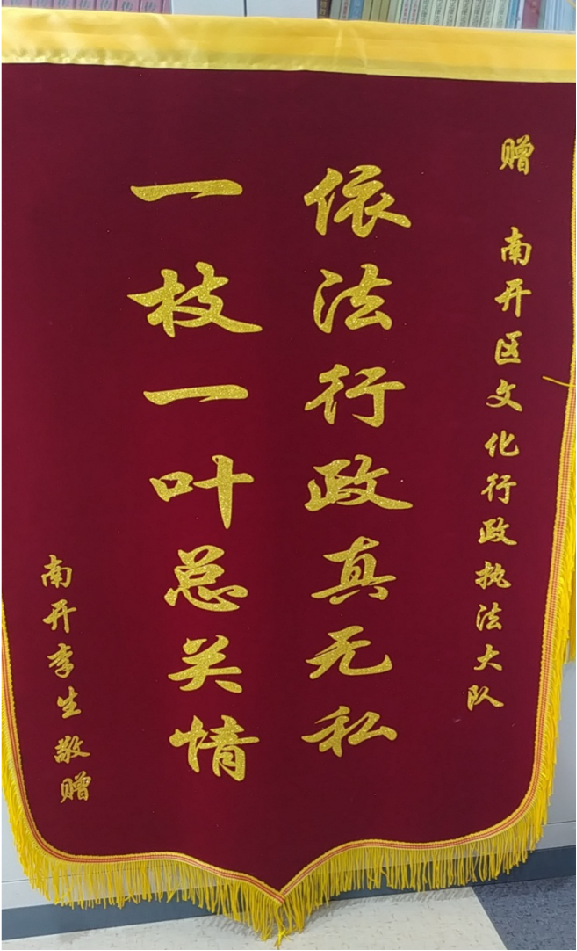 赠 南开区文化行政执法大队
依法行政真无私
一枝一叶总关情
南开李生敬赠